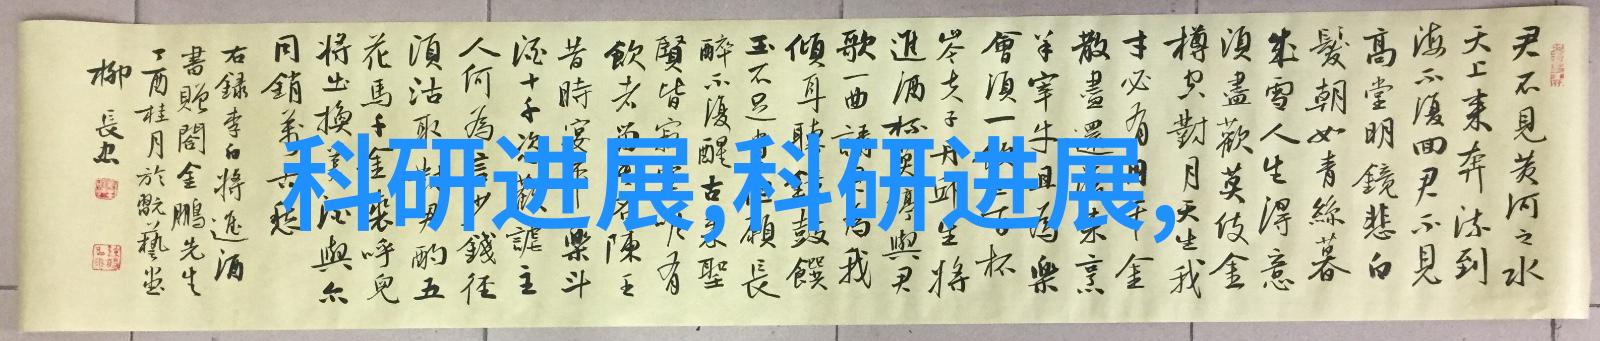 君不見黃河之水
天上來奔流到
海不復回君不見
高堂明鏡悲白
髮朝如青絲暮
成雪人生得意
須盡歡莫使金
樽空對月天生我
才必有用千金
散盡還復來烹
羊宰牛且為樂
會須一飲三百杯
岑夫子丹邱生將
進酒杯莫停與君
歌一曲請君為我
傾耳聽鐘鼓饌
玉不足貴但願長
醉不復醒古來聖
賢皆寂寞唯有
飲者留其名陳王
昔時宴平樂斗
酒十千恣歡謔主
人何為言少錢徑
須沽取對君酌五
花馬千金裘呼兒
將出換美酒與尔
同銷萬古愁
右録李白將進酒
書贈閻金鵬先生
丁酉桂月於翫藝堂
柳長忠
科研进展,科研进展,